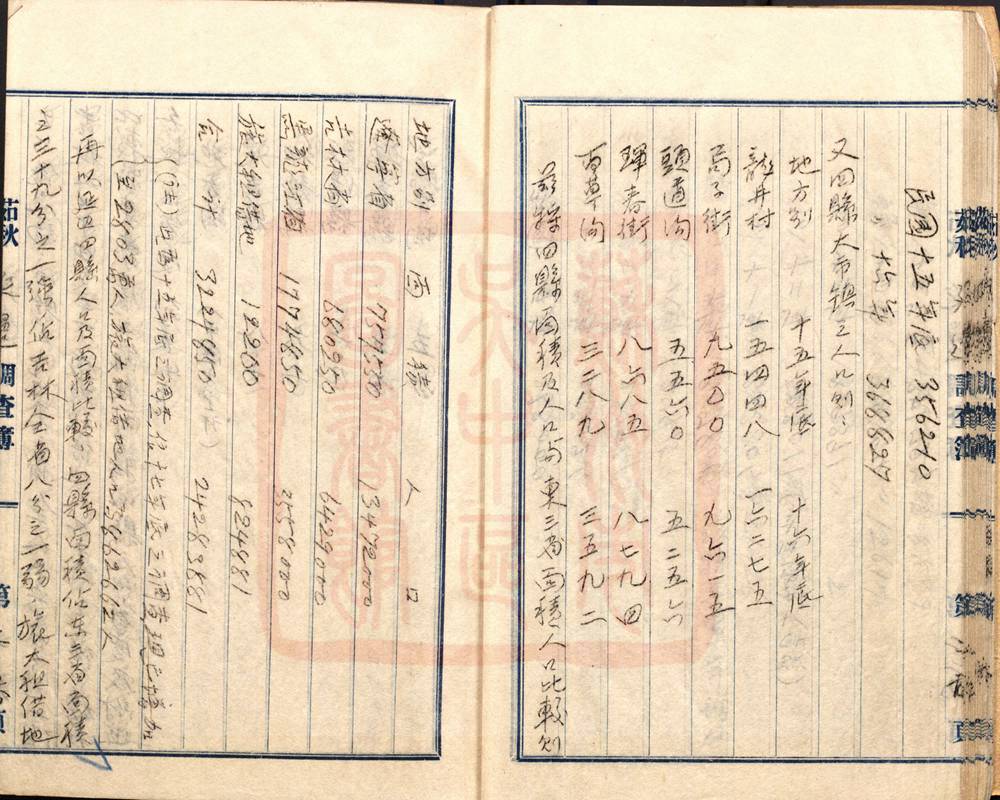 民國十五年底 356240
〃 十六年 368827
又四縣大市鎮之人口則:
地方別 十五年底 十六年底
龍井村 一五四四八 一六二七五
局子街 九五〇〇 九六一五
頭道沟 五五六〇 五二五六
琿春街 八六八五 八七九四
百草沟 三二八九 三五九二
茲將四縣面積及人口與東三省面積人口比較則
地方別 面積 人口
遼寧省 13472000
吉林省 680950 6429000
黑龍江省 1794850 3558000
旅大租借地 12260 824881
合計 3224850 24283881
(注)此爲十五年底之調查,
至2803萬人,旅大租借地人
再以延邊四縣人口及面積比較,四縣面積佔東三省面積
之三十九分之一強佔吉林全省八分之一弱,旅大租借地
調查簿
第 頁